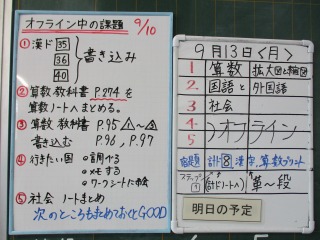 オフライン中の課題 9/10
①漢ド 35
36
40
書き込み
②算数教科書 P.274を
算数ノートへまとめる。
③算数 教科書 P.95 △1〜△
書き込む P.96, P.97
④行きたい国
メモする
ワークシートに
⑤社会 ノートまとめ
次のところもまとめておくとGOOD
9月13日〈月〉
1 算数 拡大図と縮図
2. 国語と外国語
3 社会
4
5
オフライン
宿題 計ド 8 漢字, 算数プリント
(計ドノートへ)
明日の予定